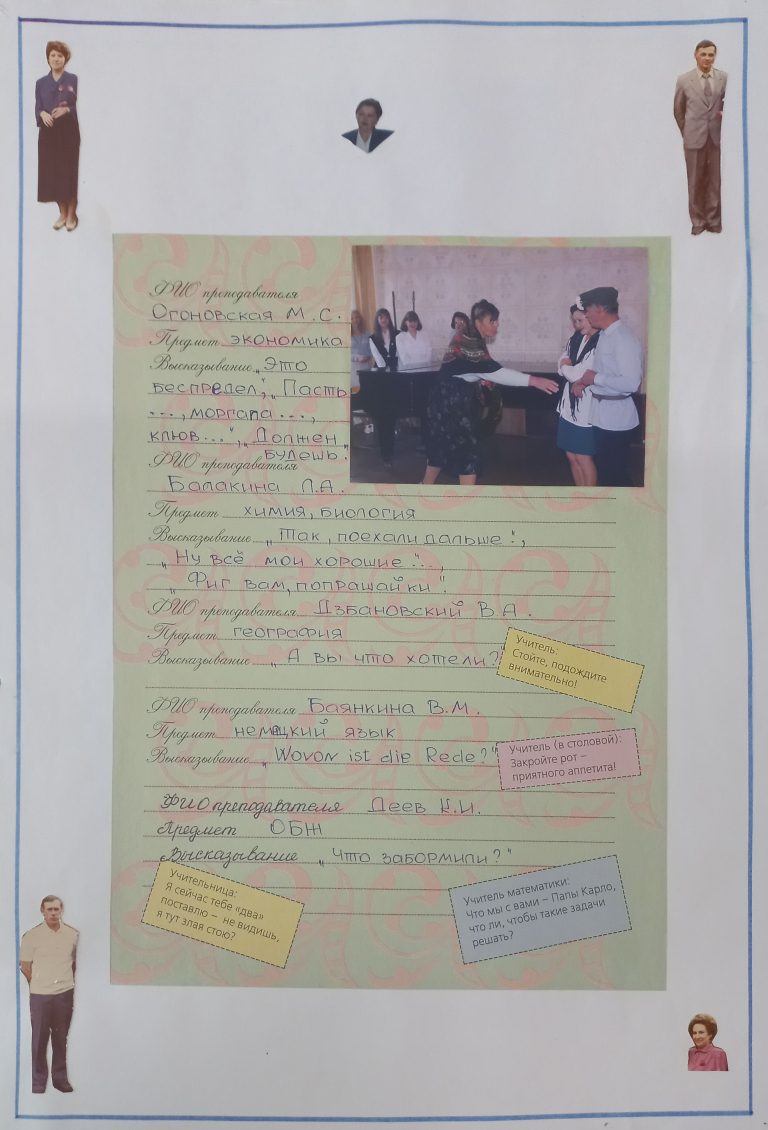 ФИО преподавателя
Огоновская М.С.
Предмет экономика
Высказывание „Это
беспредел", „Пасть
..., моргала ...,
клюв...", „Должен
будешь."
ФИО преподавателя
Балакина Л.А.
Предмет химия, биология
Высказывание „Так, поехали дальше",
„Ну всё мои хорошие"...,
„Фиг вам, попрашайки".
ФИО преподавателя Дзбановский В.А.
Предмет география
Высказывание „А вы что хотели?"
Учитель:
Стойте, подождите
внимательно!
ФИО преподавателя Баянкина В.М.
Предмет немецкий язык
Высказывание „Wovon ist die Rede?"
Учитель (в столовой):
Закройте рот –
приятного аппетита!
ФИО преподавателя Деев Н.И.
Предмет ОБЖ
Высказывание „Что забормили?"
Учительница:
Я сейчас тебе «два»
поставлю – не видишь,
я тут злая стою?
Учитель математики:
Что мы с вами – Папы Карло,
что ли, чтобы такие задачи
решать?